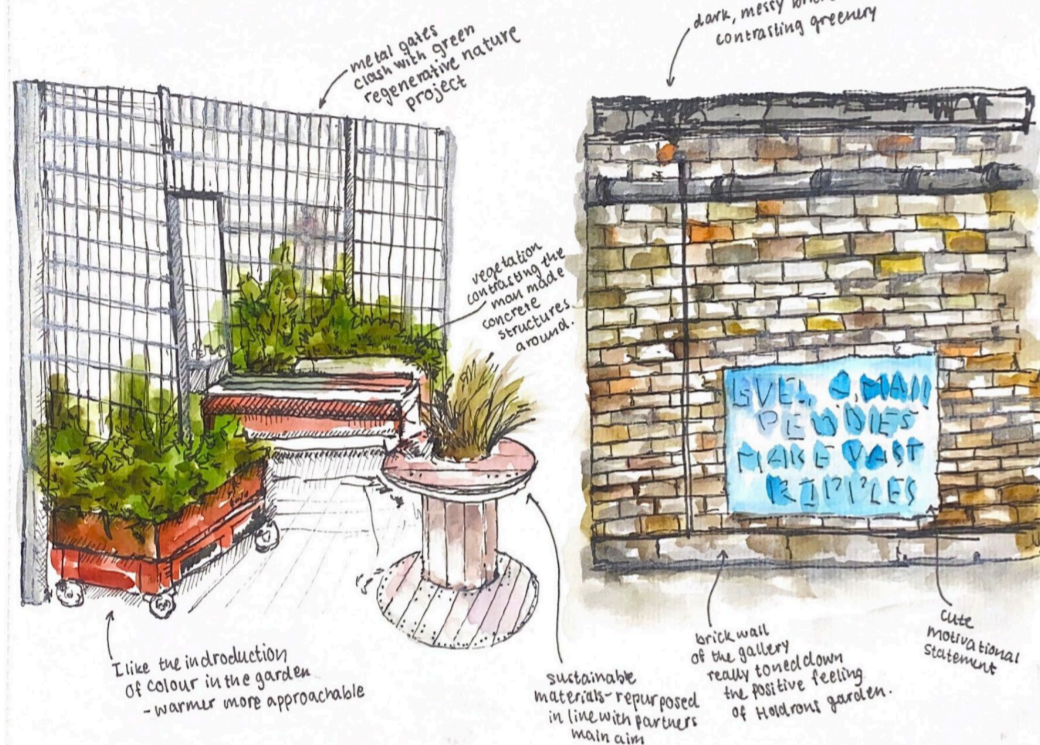 metal gates
clash with green
regenerative nature
project
dark, messy
contrasting greenery
vegetation
contrasting the
man made
concrete
structures
around.
MAKE VAST
I like the indroduction
of colour in the garden
- warmer more approachable
sustainable
materials - repurposed
in line with partners
main aim
brick wall
of the gallery
really toned down
the positive feeling
of Holdrons garden.
cute
motivational
statement